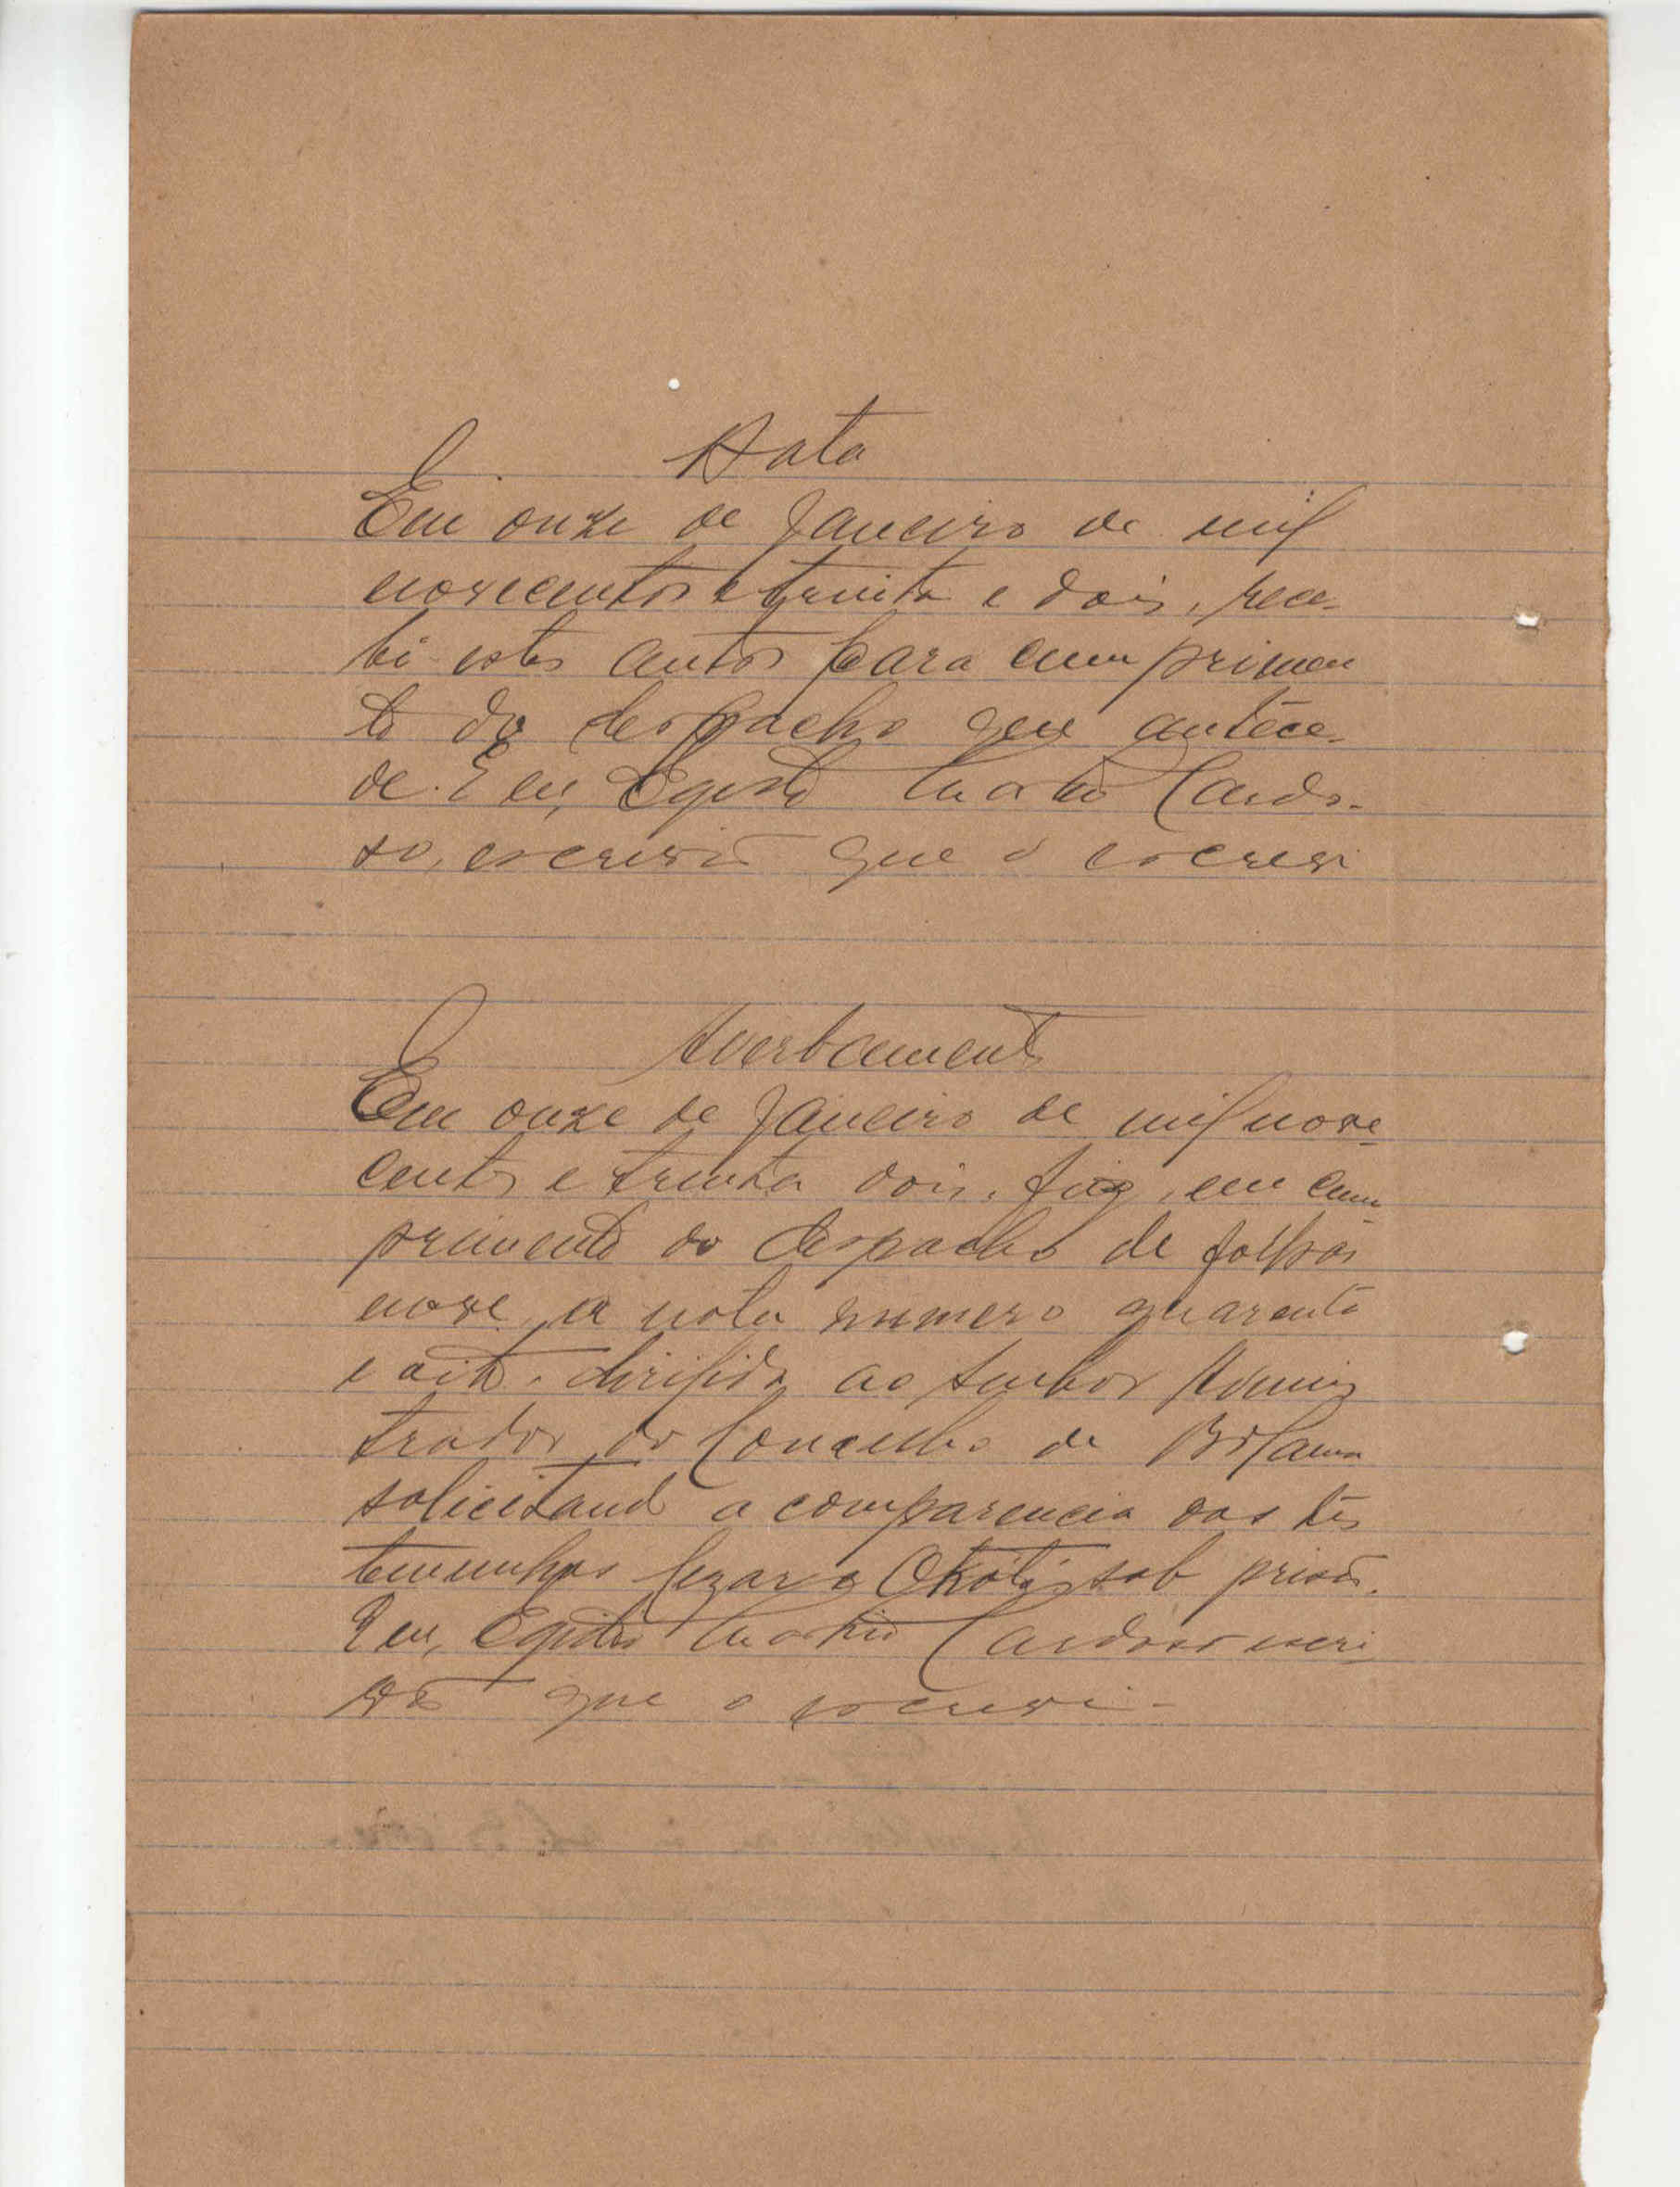 Data
Em onze de Janeiro de mil
novecentos e trinta e dois, rece-
bi estes autos para cumprimen
to do despacho que antece-
de. E eu, Egidio Cardo-
so, escrivão que o escrevi
Averbamento
Em onze de Janeiro de mil nove-
centos e trinta dois, fiz, em cum
primento do despacho de folhas
nove, a nota numero quarenta
e oito, dirigida ao senhor Adminis
trador do Concelho de Bolama
solicitando a comparencia das tes
temunhas sob prisão.
E eu, Egidio Cardoso escri
vão que o escrevi-